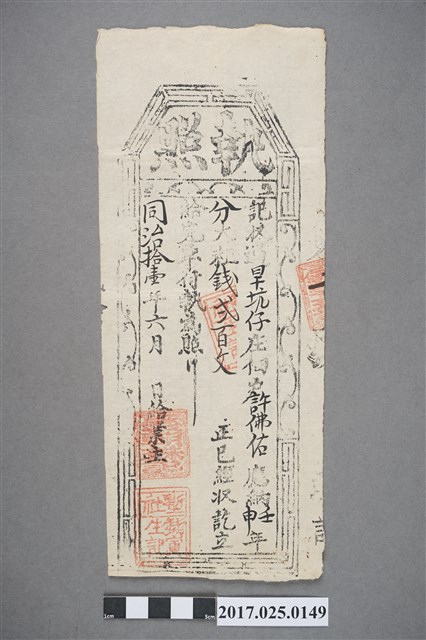 執照
旱坑仔庄佃許佛佑應納壬申年
分大租錢弍百文 正已經收訖立
給完單付執為照
同治拾壹年六月 日給業主
新
社生
記
1cm
5cm
2017.025.0149